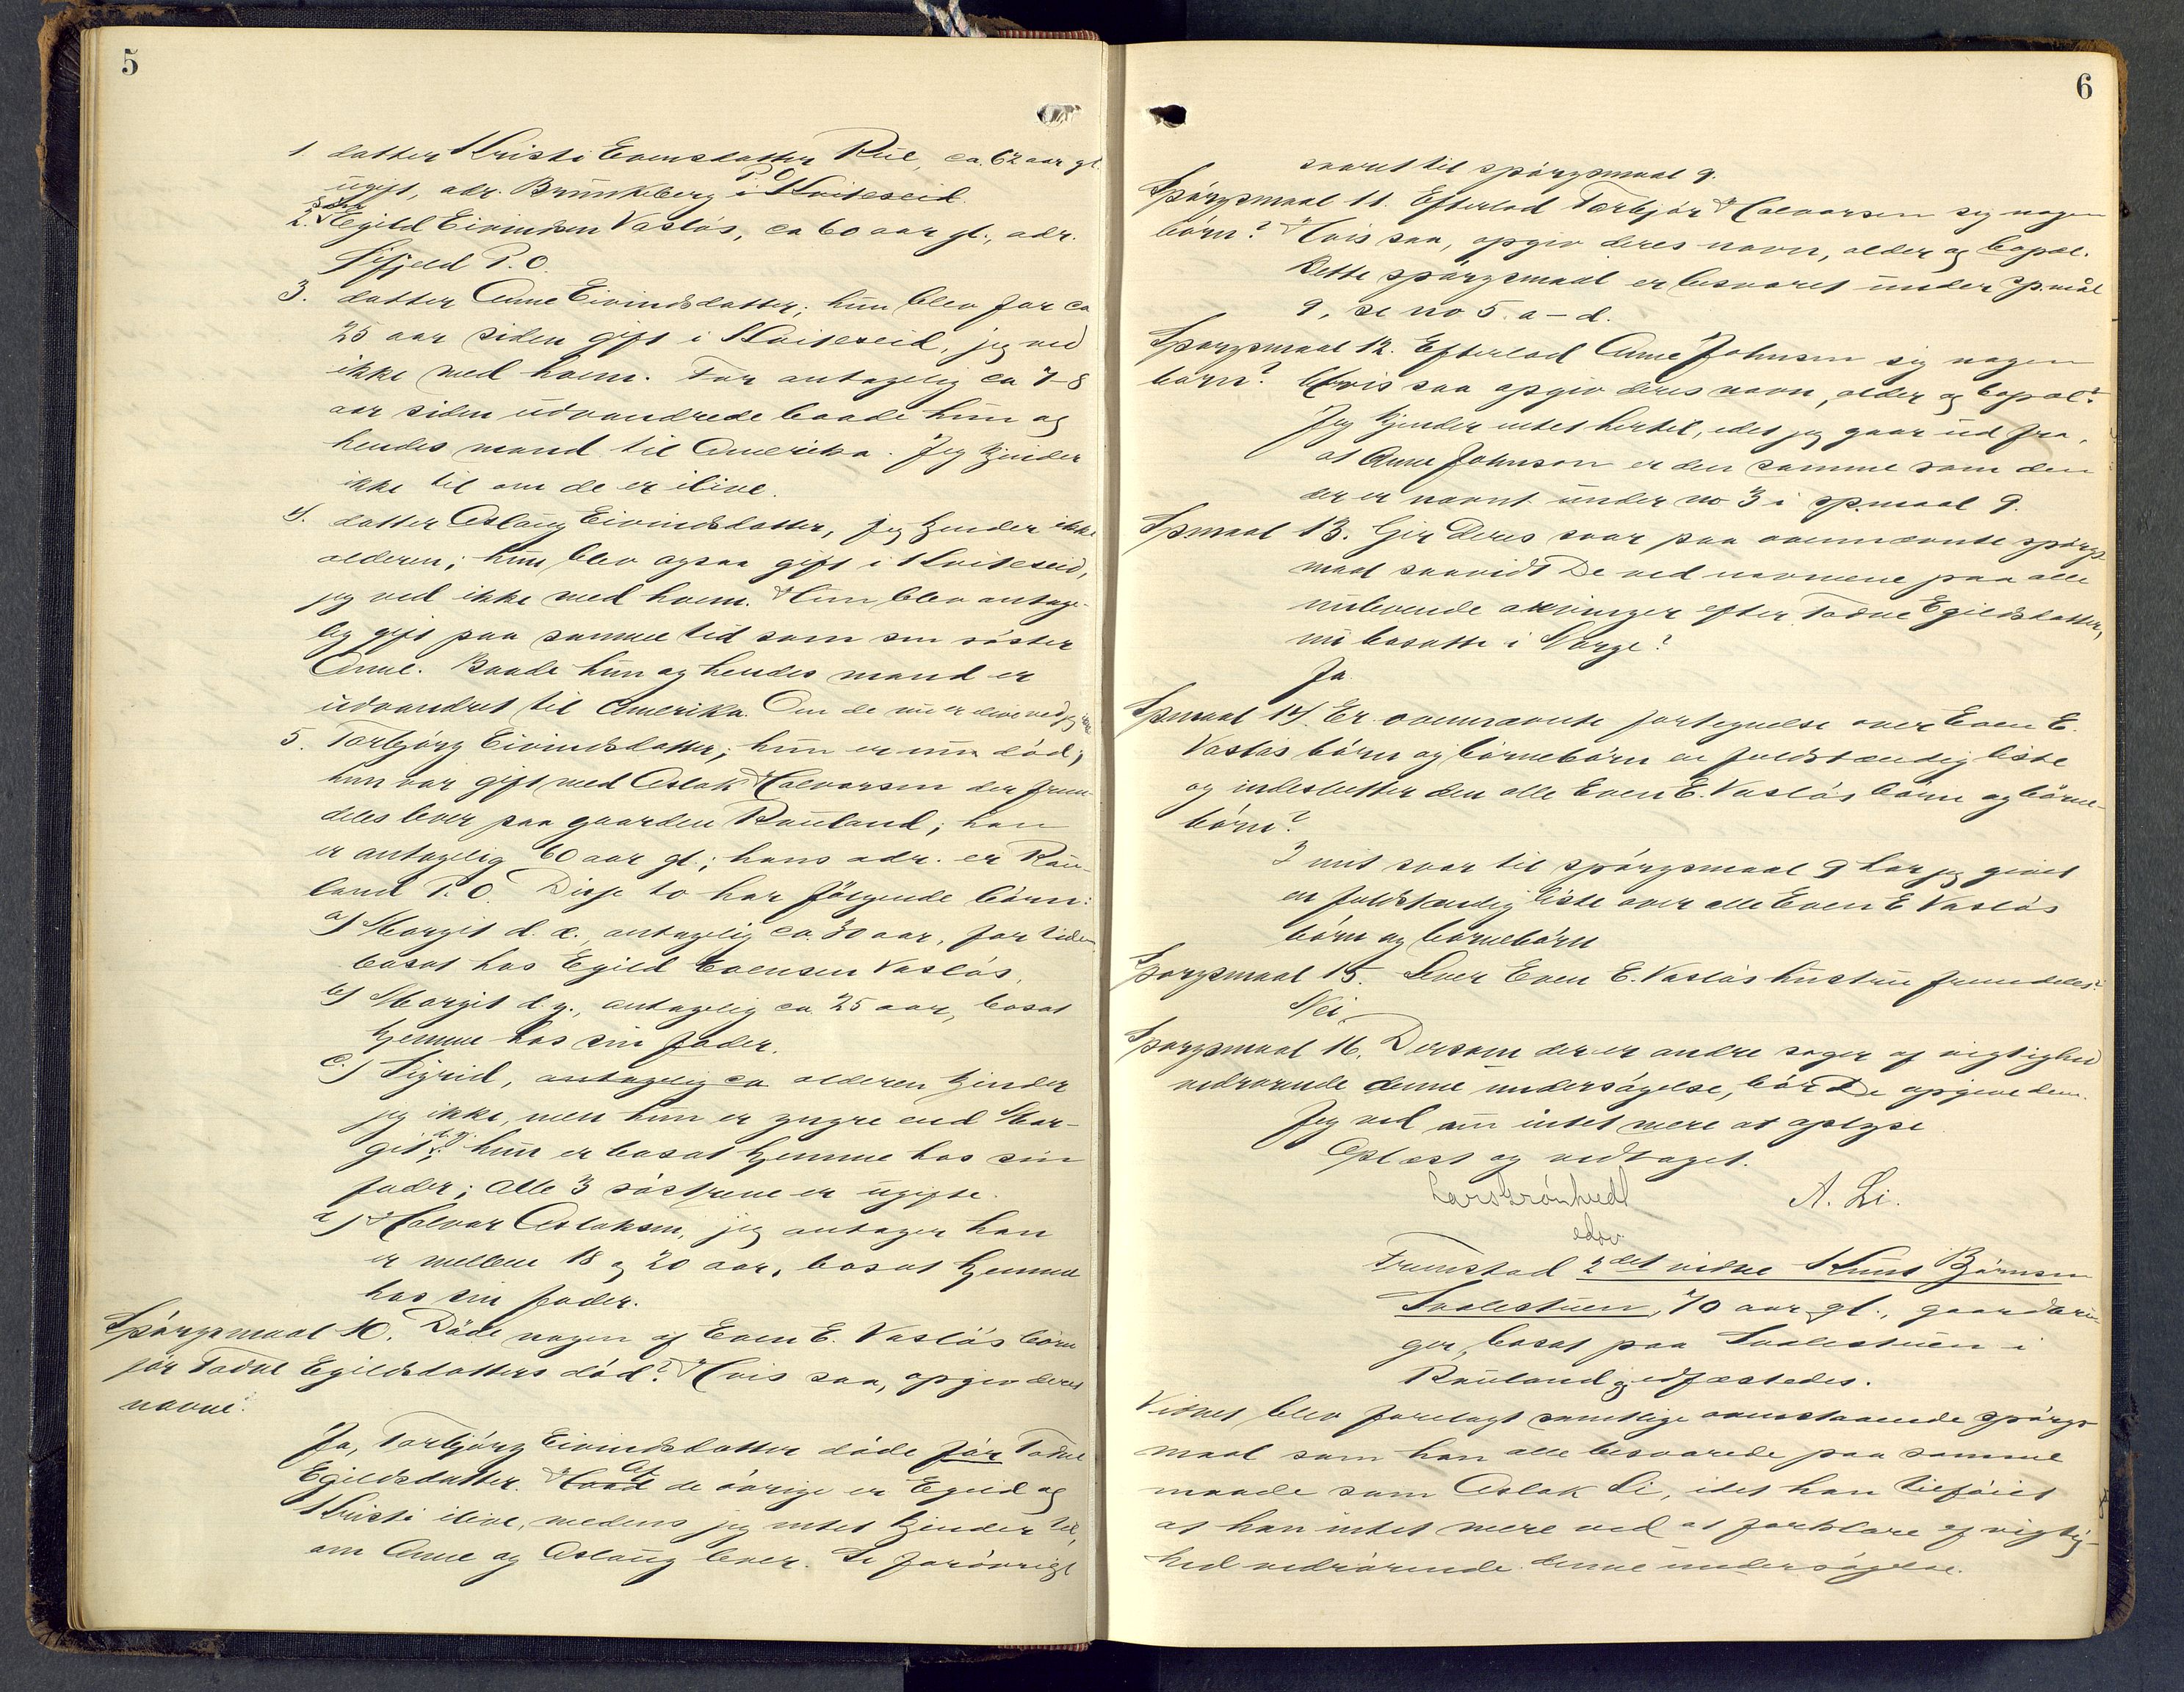 5
1. datter Kristi Evensdatter Rue, ca. 62 aar gl.
ugift, adr. Brunkeberg P.O. i Kviteseid.
2. søn Egild Eivindsen Vasløs, ca 60 aar gl., adr.
Lifjeld P.O.
3. datter Anne Eivindsdatter; hun blev for ca
25 aar siden gift i Kviteseid, jeg ved
ikke med hvem. For antagelig ca 7-8
aar siden udvandrede baade hun og
hendes mand til Amerika. Jeg kjender
ikke til om de er ilive.
4. datter Aslaug Eivindsdatter, jeg kjender ikke
alderen; hun blev ogsaa gift i Kviteseid,
jeg ved ikke med hvem. Hun blev antage-
lig gift paa samme tid som sin søster
Anne. Baade hun og hendes mand er
udvandret til Amerika. Om de nu er ilive ved jeg ikke
5. Torbjørg Eivindsdatter; hun er nu død;
hun var gift med Aslak Halvorsen der frem-
deles lever paa gaarden Rauland; han
er antagelig 60 aar gl.; hans adr. er Rau-
land P.O. Disse to har følgende børn:
a) Margit d.æ., antagelig ca. 30 aar, for tiden
bosat hos Egild Evensen Vasløs,
b) Margit d.y., antagelig ca 25 aar, bosat
hjemme hos sin fader.
c.) Sigrid, antagelig ca alderen kjender
jeg ikke, men hun er yngre end Mar-
git d.y.; hun er bosat hjemme hos sin
fader; alle 3 søstrene er ugifte.
d) Halvor Aslaksen, jeg antager han
er mellem 18 og 20 aar, bosat hjemme
hos sin fader.
Spørgsmaal 10. Døde nogen af Even E. Vasløs børn
før Tadne Egildsdatters død? Hvis saa, opgiv deres
navne.
Ja, Torbjørg Eivindsdatter døde før Tadne
Egildsdatter. Hvad Af de øvrige er Egild og
Kristi ilive, medens jeg intet kjender til,
om Anne og Aslaug lever. Se forøvrigt
6
svaret til spørgsmaal 9.
Spørgsmaal 11. Efterlod Torbjør Halvorsen sig nogen
børn? Hvis saa, opgiv deres navn, alder og bopæl.
Dette spørgsmaal er besvaret under sp.mål
9, se no 5. a-d.
Spørgsmaal 12. Efterlod Anne Johnson sig nogen
børn? Hvis saa opgiv deres navn, alder og bopæl?
Jeg kjender intet hertil, idet jeg gaar ud fra,
at Anne Johnson er den samme som den
der er nævnt under no 3 i sp.maal 9.
Spmaal 13. Gir Deres svar paa ovennævnte spørgs-
maal saavidt De ved navnene paa alle
nulevende arvinger efter Tadne Egildsdatter,
nu bosatte i Norge?
Ja.
Spmaal 14. Er ovennævnte fortegnelse over Even E.
Vasløs børn og børnebørn en fuldstændig liste
og indeslutter den alle Even E. Vasløs børn og børne-
børn?
I mit svar til spørgsmaal 9 har jeg givet
en fuldstændig liste over alle Even E Vasløs
børn og børnebørn
Spørgsmaal 15. Lever Even E. Vasløs hustru fremdeles?
Nei.
Spørgsmaal 16. Dersom der er andre sager af vigtighed
vedrørende denne undersøgelse, bør De opgive dem.
Jeg ved nu intet mere at oplyse
Oplæst og vedtaget.
A. Li.
edsv.
Fremstod 2det vidne Knut Bjørnsen
70 aar gl., gaardbru-
ger, bosat paa
Rauland edfæstedes.
Vidnet blev forelagt samtlige ovenstaaende spørgs-
maal som han alle besvarede paa samme
maade som Aslak Li, idet han tilføiet
at han intet mere ved at forklare af vigtig-
hed vedrørende denne undersøgelse.